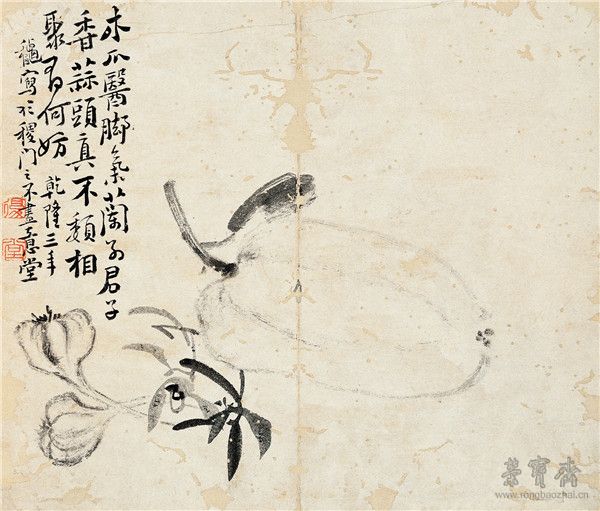 木瓜醫脚氣蘭为君子
香蒜頭真不類相
聚有何妨 乾隆三年
龝寫於稷門之不盡意堂
復
堂
榮寶齋
www.rongbaozhai.cn